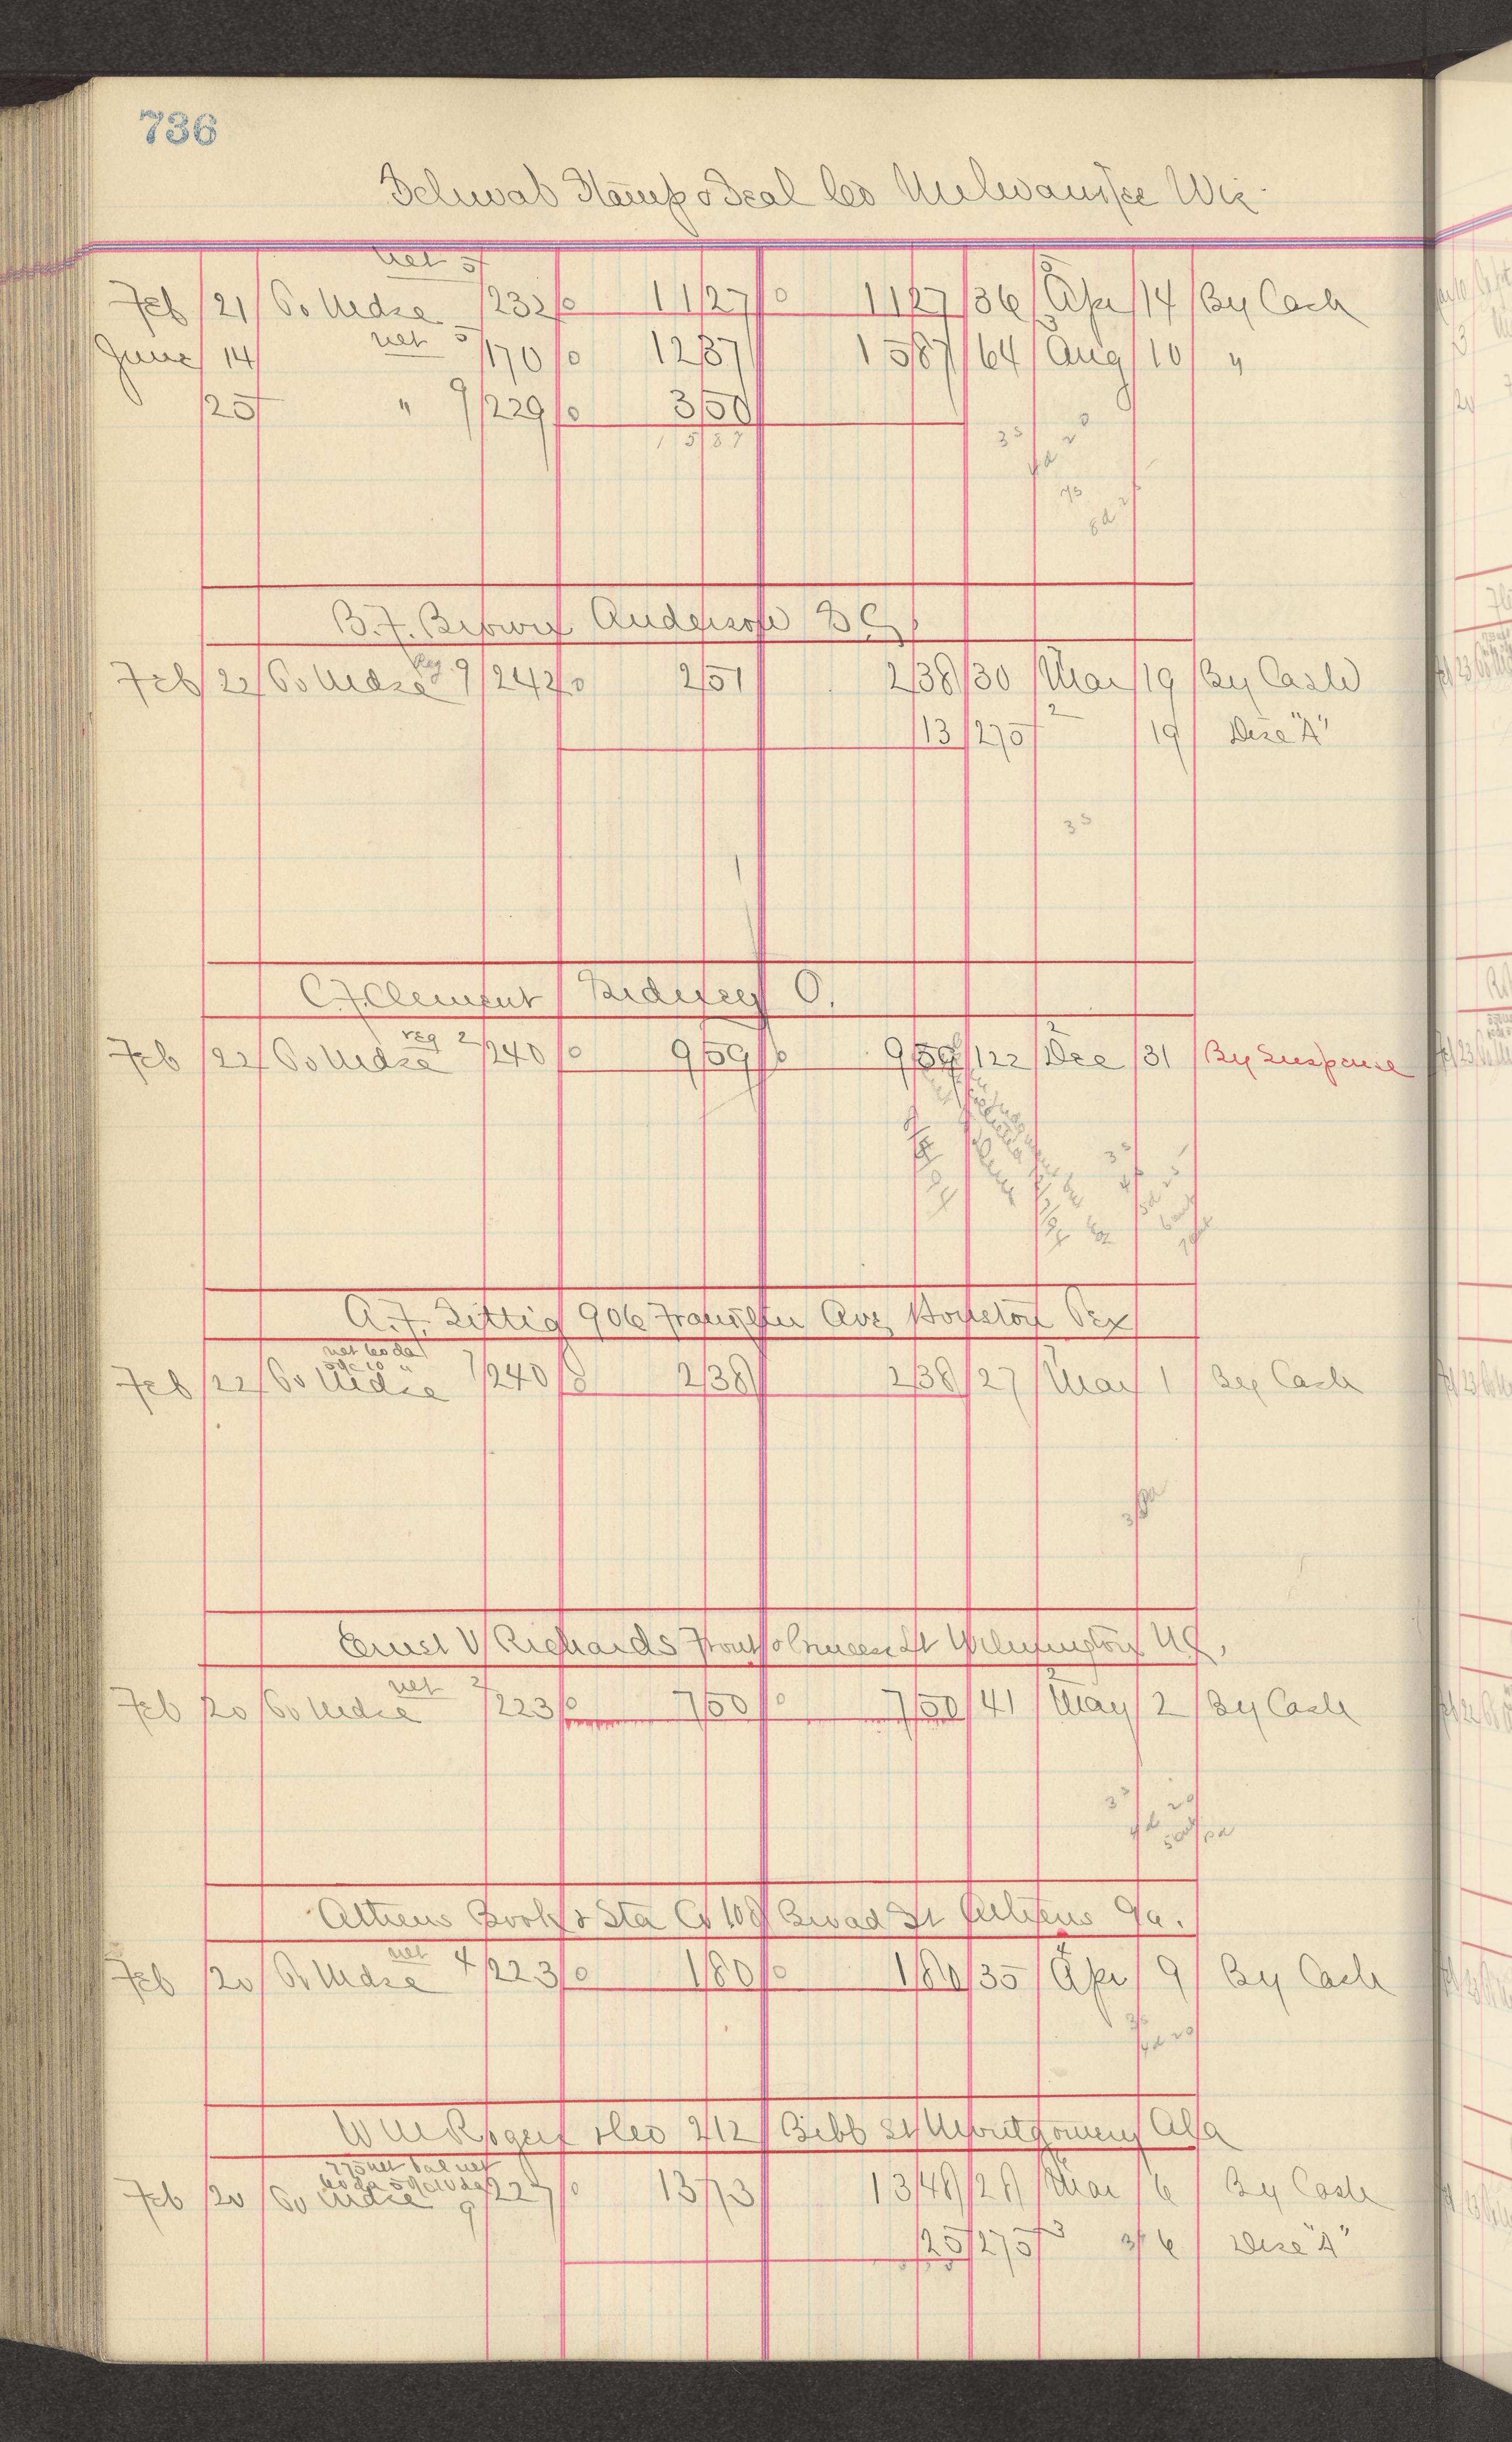 736
Schwab Stamp & Seal Co Milwaukee Wis
net 5
Feb 21 To Mdse 232 0 11 27 0 11 27 36 Apr 14 By Cash
net 5 3
June 14 170 0 12 37 15 87 64 Aug 10 "
25 " 9 229 0 3 50
15 87
3 s
4 d 20
7 s
8 d
B. F. Brown Anderson S C
Reg
Feb 22 To Mdse 9 242 0 2 51 2 38 30 Mar 19 By Cash
13 275 2 19 Disc "A"
3 s
C. F. Clement Sidney O.
reg 2 2
Feb 22 To Mdse 240 0 9 59 0 9 59 122 Dec 31 By Suspense
3 s
5 d 25
A. F. Zittig 906 Franklin Ave Houston Tex
net 60 da
5% 10 "
Feb 22 To Mdse 7 240 0 2 38 2 38 27 Mar 1 By Cash
Ernst V Richards Front & Princess St Wilmington N C,
net 2 2
Feb 20 To Mdse 223 0 7 50 0 7 50 41 May 2 By Cash
3 s
4 d 20
Athens Book & Sta Co 108 Broad St Athens Ga.
net 4
Feb 20 To Mdse 4 223 0 1 80 0 1 80 35 Apr 9 By Cash
3 s
4 d 20
W M Rogers & Co 212 Bibb St Montgomery Ala
775 net bal net
60 da 5% 10 da
Feb 20 To Mdse 9 227 0 13 73 13 48 28 Mar 6 By Cash
25 275 3 6 Disc "A"